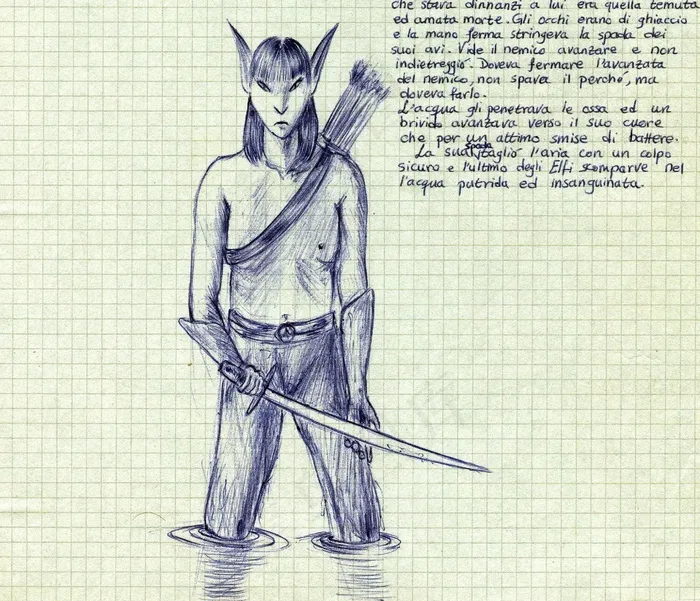 che stava dinnanzi a lui era quella temuta
ed amata morte. Gli occhi erano di ghiaccio
e la mano ferma stringeva la spada dei
suoi avi. Vide il nemico avanzare e non
indietreggiò. Doveva fermare l'avanzata
del nemico, non spava il perché, ma
doveva farlo.
L'acqua gli penetrava le ossa ed un
brivido avanzava verso il suo cuore
che per un attimo smise di battere.
La sua spada tagliò l'aria con un colpo
sicuro e l'ultimo degli Elfi scomparve nel
l'acqua putrida ed insanguinata.